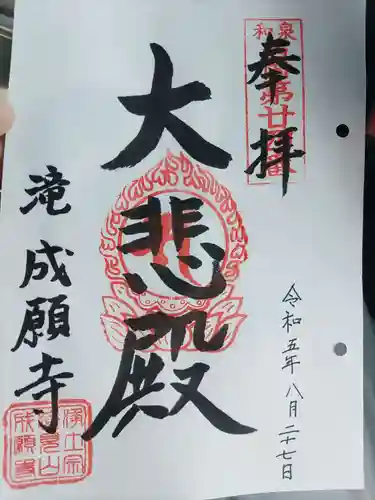 奉拝
大悲殿
滝 成願寺
令和五年 八月二十七日
和泉
第廿
浄土宗
成願寺